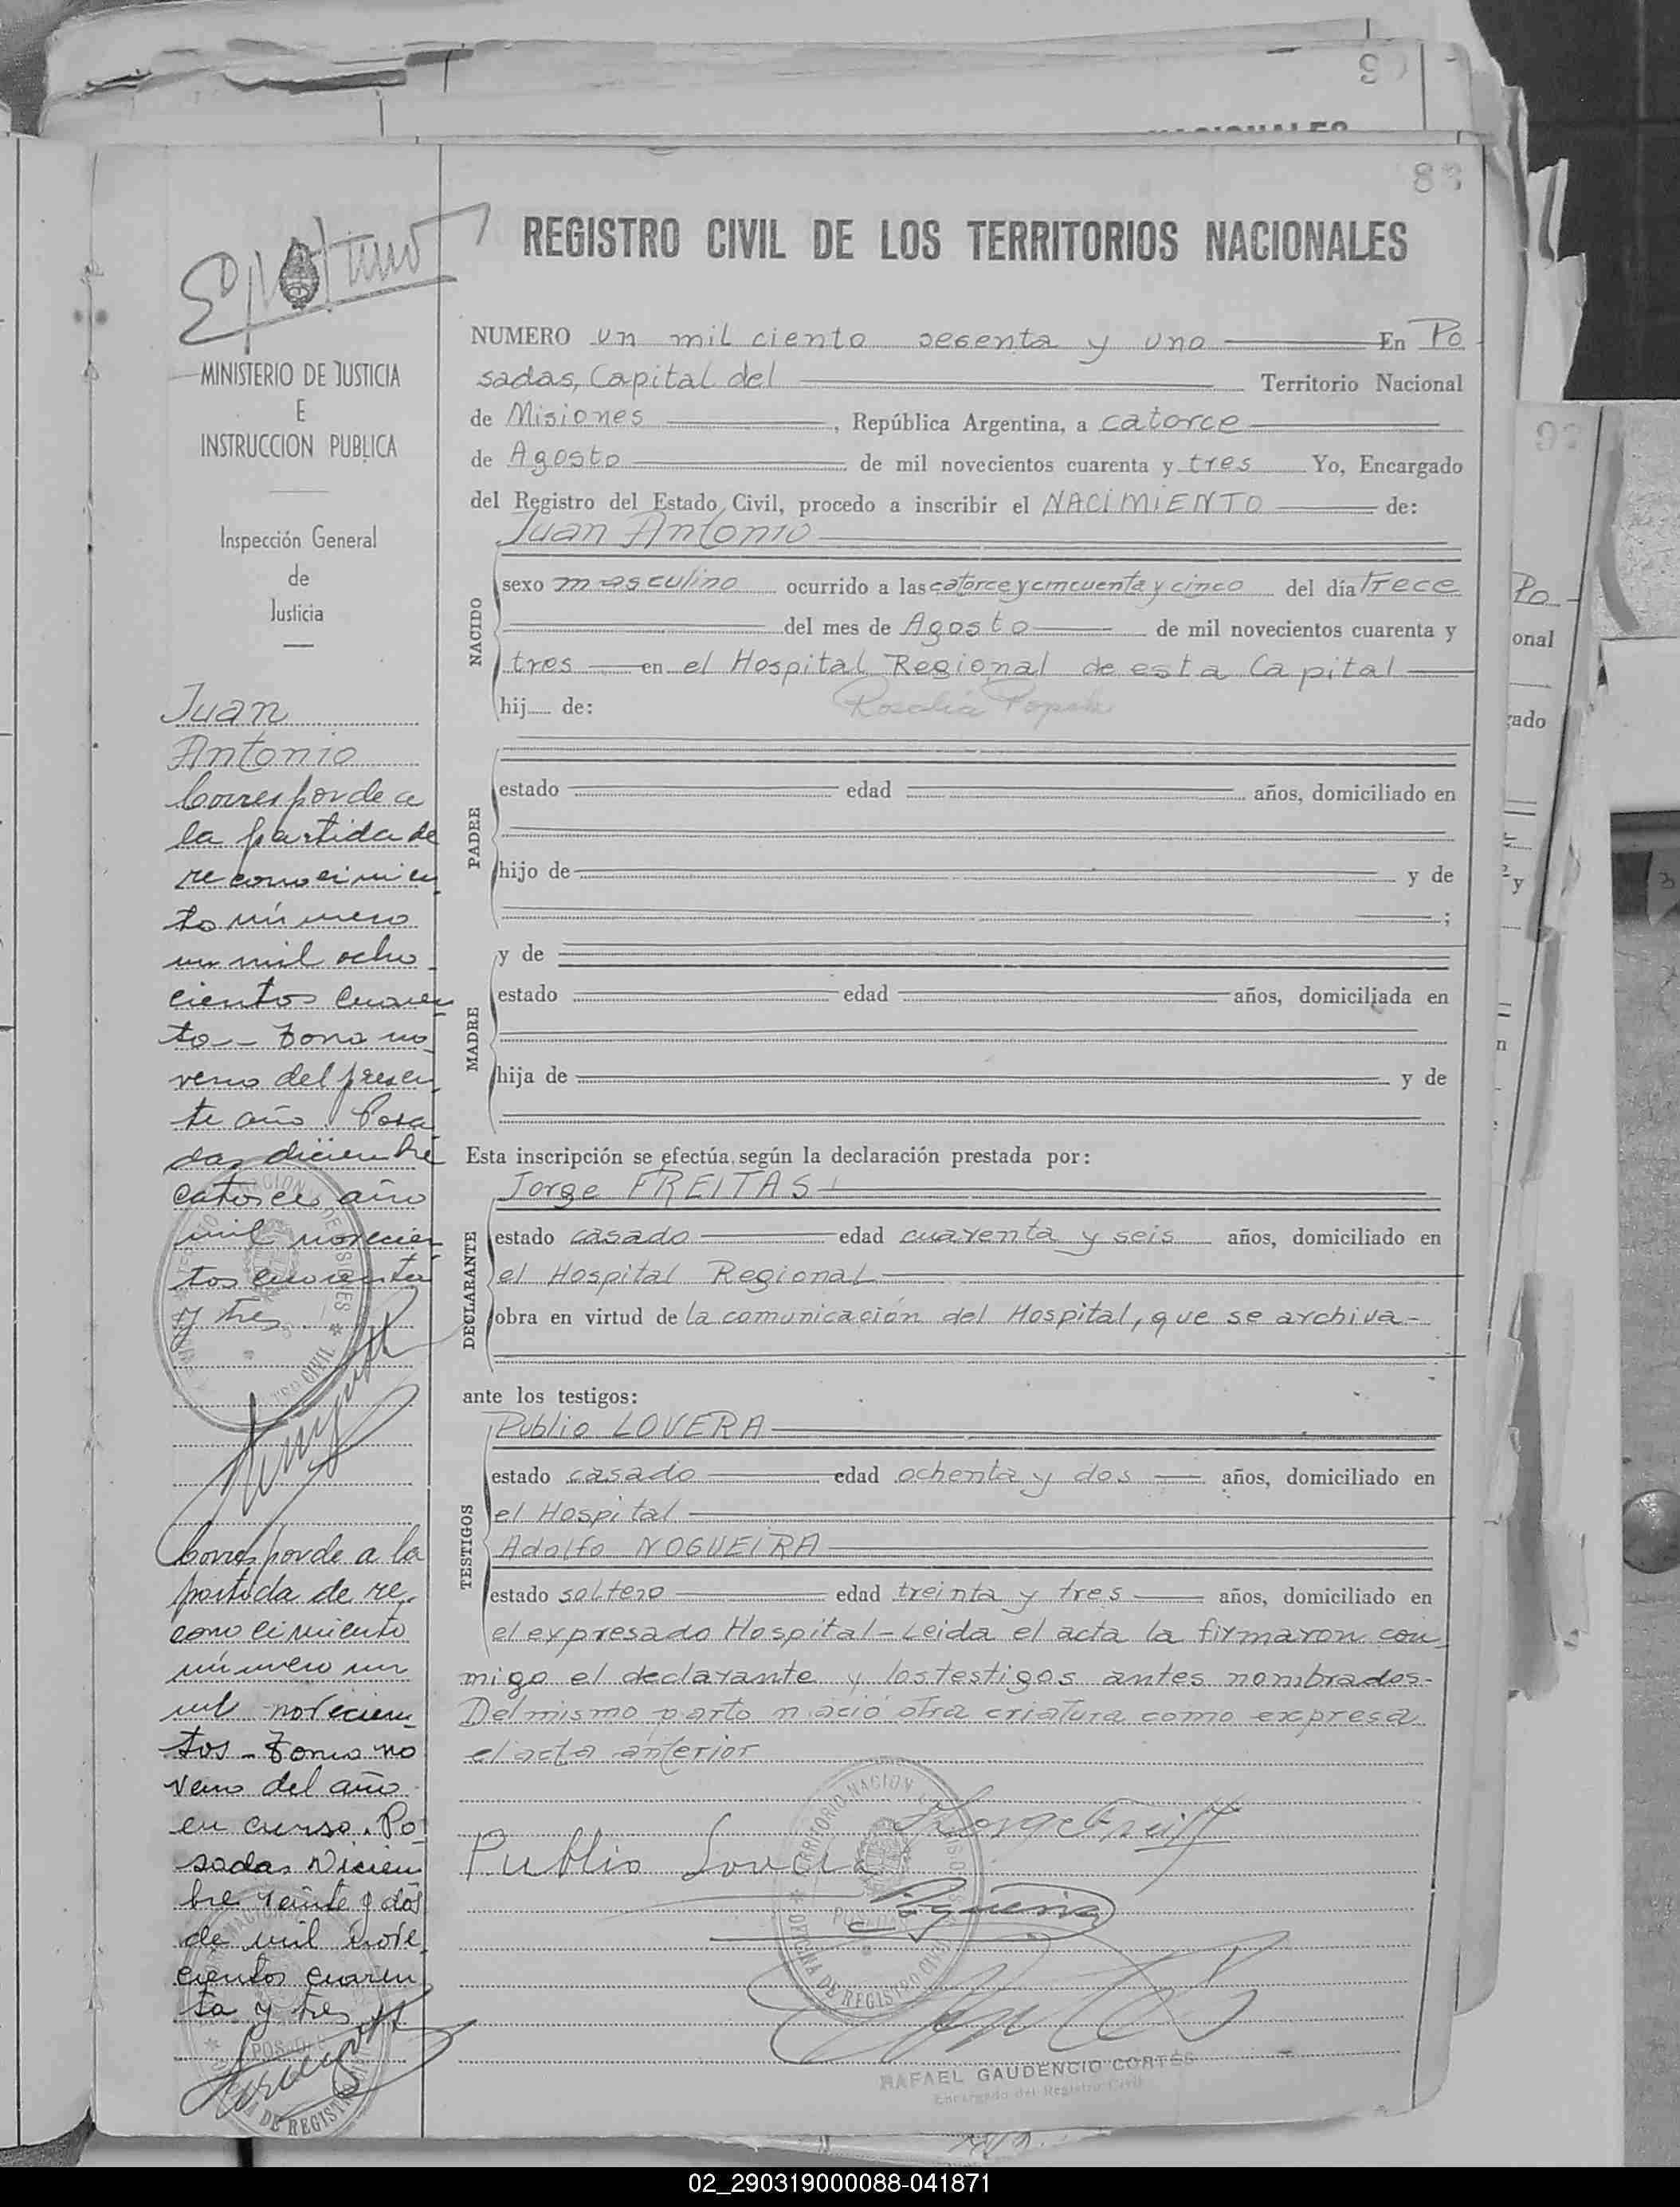 9
NACIONALES
83
REGISTRO CIVIL DE LOS TERRITORIOS NACIONALES
MINISTERIO DE JUSTICIA
E
INSTRUCCION PUBLICA
Inspección General
de
Justicia
Juan
Antonio
Corresponde a
la partida de
reconocimien
to número
un mil ocho
cientos cuaren
ta - Tomo no
veno del presen
te año. Posa
das, diciembre
catorce año
mil novecien
tos cuarenta
y tres
Corresponde a la
partida de re-
conocimiento
número un
mil novecien
tos - Tomo no
veno del año
en curso. Po
sadas Diciem
bre veinte y dos
de mil nove
cientos cuaren
ta y tres
NUMERO un mil ciento sesenta y uno En Po
sadas, Capital del Territorio Nacional
de Misiones, República Argentina, a catorce
de Agosto de mil novecientos cuarenta y tres Yo, Encargado
del Registro del Estado Civil, procedo a inscribir el NACIMIENTO de:
Juan Antonio
NACIDO
sexo masculino ocurrido a las catorce y cincuenta y cinco del día trece
del mes de Agosto de mil novecientos cuarenta y
tres en el Hospital Regional de esta Capital
hij de: Rosalia
PADRE
estado edad años, domiciliado en
hijo de y de
;
MADRE
y de
estado edad años, domiciliada en
hija de y de
Esta inscripción se efectúa según la declaración prestada por:
DECLARANTE
Jorge FREITAS
estado casado edad cuarenta y seis años, domiciliado en
el Hospital Regional
obra en virtud de la comunicación del Hospital, que se archiva-
ante los testigos:
TESTIGOS
Publio LOVERA
estado casado edad ochenta y dos años, domiciliado en
el Hospital
Adolfo NOGUEIRA
estado soltero edad treinta y tres años, domiciliado en
el expresado Hospital-Leida el acta la firmaron con
migo el declarante y los testigos antes nombrados-
Del mismo parto nació otra criatura como expresa
el acta anterior
Publio Lovera
RAFAEL GAUDENCIO CORTÉS
Encargado del Registro Civil
Po
onal
02_290319000088-041871